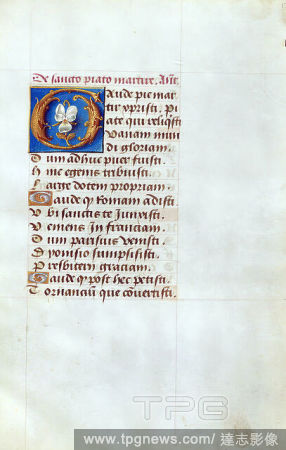 De sancto piato martire. Ant.
Gaude pie mar
tir xpristi. Pi
ate qui reliqsti
Vanam mun
di gloriam.
Dum adhuc puer fuisti.
hinc egenis tribuisti.
Large dotem propriam.
Gaude q romam adisti
Vbi sanctis te iunxisti.
Veniens in franciam.
Cum patrisius venisti.
Dyonisio sumpsisisti.
Presbiteri graciam.
Gaude q post hec petisti.
Tornancium que convertisti.
TPG
www.tpgnews.com/ 達志影像